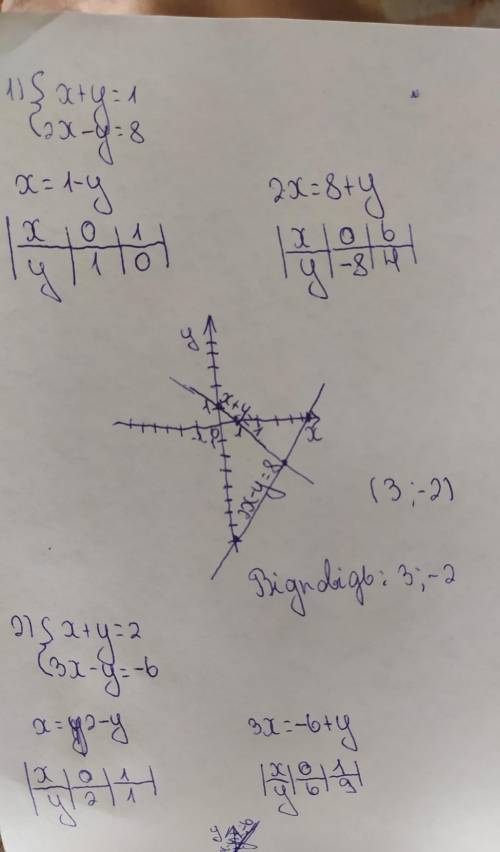 1) { x+y=1
2x-y=8
x=1-y 2x=8+y
x | 0 | 1
y | 1 | 0
x | 0 | 6
y | -8 | 4
y
1 x+y
-1 0 1 x
2x-y=8
(3;-2)
Відповідь: 3;-2
2) { x+y=2
3x-y=-6
x=2-y 3x=-6+y
x | 0 | 1
y | 2 | 1
x | 0 | 1
y | 6 | 9
y